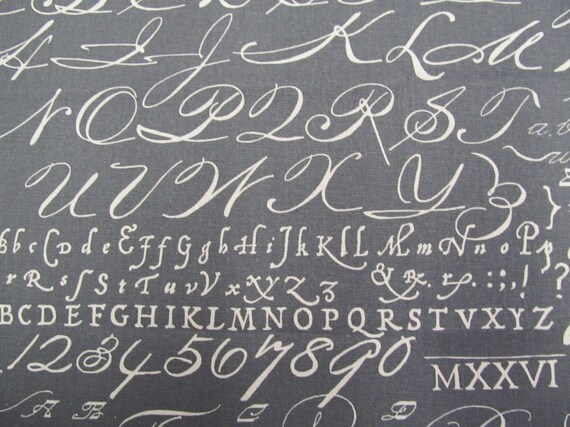 H I J K L M
N O P Q R S T a.b
U V W X Y Z }
B b c C D d e E f f G g b h H i I j k K l L M m N n o P p
r R s ſ S t T u v V x X y Z z & . : ; , ! ?
BCDEFGHIKLMNOPQRSTVXYZ
1234567890
MXXVI
A B C D E